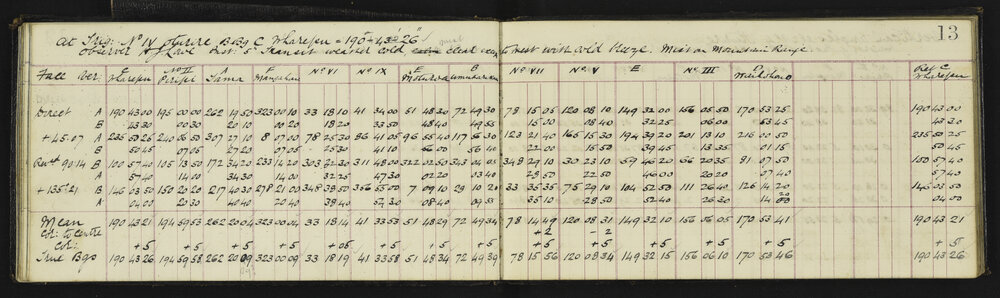 13
At Trig: No IV observe Brg C Wharepu = 190° 43' 26"
Observer Inst: 5" Transit weather cold clear west with cold Mist on Mountain Range
Face Ver: C Wharepu No II A Tama F No VI No IX E Moturoa B No VII No V E No III D Ref C Wharepu
Direct A 190 43 00 195 00 00 262 19 50 323 00 10 33 18 10 41 34 00 51 48 30 72 49 30 78 15 05 120 08 10 149 32 00 156 05 50 170 53 25 190 43 00
B 43 30 00 30 20 10 00 20 18 20 33 50 48 40 49 55 15 00 08 40 32 25 06 00 53 45 43 30
+ 45.07 A 235 50 25 240 06 50 307 27 10 8 07 00 78 25 30 86 41 05 96 55 40 117 56 30 123 21 40 165 15 30 194 39 20 201 13 10 216 00 50 235 50 25
B 50 45 07 05 27 20 07 05 25 30 41 10 56 00 56 40 22 00 15 50 39 45 13 35 01 15 50 45
Rev 90.14 B 100 57 40 105 13 50 172 34 20 233 14 20 303 32 30 311 48 00 322 02 50 343 04 05 348 29 10 30 23 10 59 46 20 66 20 35 81 07 50 100 57 40
A 57 40 14 00 34 30 14 00 32 25 47 30 02 20 03 40 28 50 22 50 46 00 20 20 07 40 57 40
+ 135.21 B 146 03 50 150 20 20 217 40 30 278 21 00 348 38 50 356 55 00 7 09 10 28 10 20 33 35 35 75 29 10 104 52 50 111 26 40 126 14 20 146 03 50
A 04 00 20 30 40 40 20 40 38 40 54 30 08 40 09 55 35 10 28 50 52 40 26 30 14 00 04 00
Mean 190 43 21 194 59 53 262 20 04 323 00 04 33 18 14 41 33 53 51 48 29 72 49 34 78 14 49 120 08 31 149 32 10 156 06 05 170 53 41 190 43 21
Cor: to Centre +2 -2
Cor: +5 +5 +5 +5 +05 +5 +5 +5 +5 +5 +5 +5 +5 +5
True Brgs 190 43 26 194 59 58 262 20 09 323 00 09 33 18 19 41 33 58 51 48 34 72 49 39 78 15 56 120 08 34 149 32 15 156 06 10 170 53 46 190 43 26